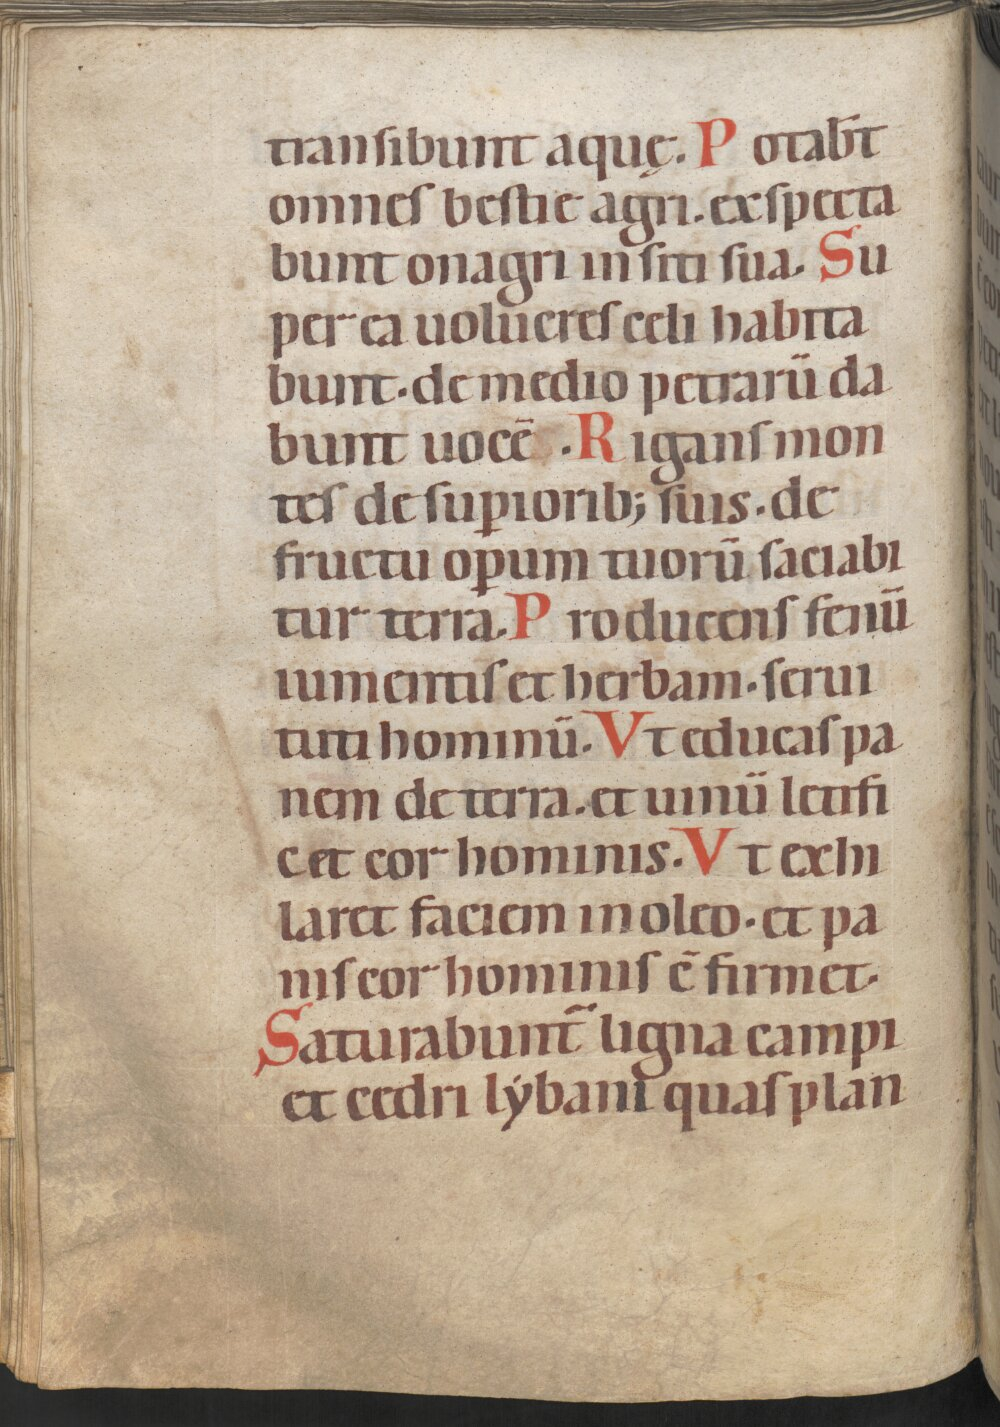 transibunt aquę. P otab̄t
omnes bestie agri. exspecta
bunt onagri in siti sua. Su
per ea uolucres celi habita
bunt. de medio petrarū da
bunt uocē . R igans mon
tes de suꝑiorib; suis. de
fructu oꝑum tuorū saciabi
tur terra. P roducens fenū
iumentis et herbam. serui
tuti hominū. Vt educas pa
nem de terra. et uinū letifi
cet cor hominis. V t exhi
laret faciem in oleo. et pa
nis cor hominis c̄firmet.
Saturabunt̄ ligna campi
et cedri lẏbani quas plan